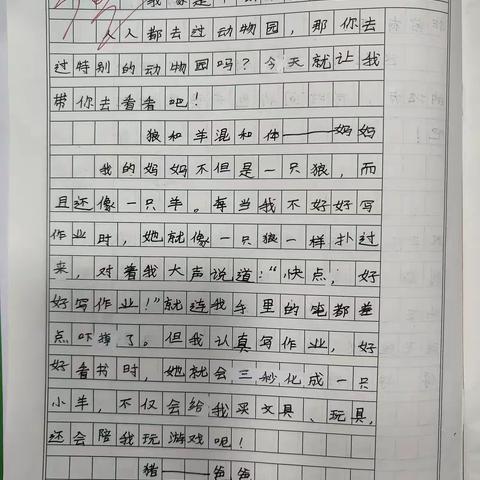 我家是
人人都去过动物园，那你去
过特别的动物园吗？今天就让我
带你去看看吧！
狼和羊混和体——妈妈
我的妈妈不但是一只狼，而
且还像一只羊。每当我不好好写
作业时，她就像一只狼一样扑过
来，对着我大声说道：“快点，好
好写作业！”就连我手里的笔都差
点吓掉了。但我认真写作业，好
好看书时，她就会三秒化成一只
小羊，不仅会给我买文具、玩具，
还会陪我玩游戏呢！
猪——爸爸